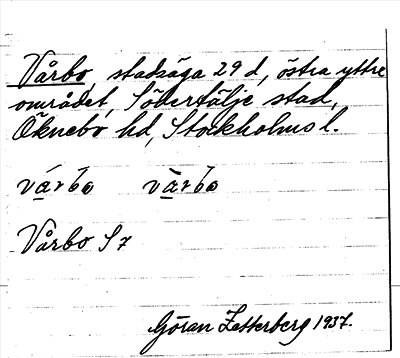 Vårbo, stadsäga 29 d, östra yttre
området, Södertälje stad,
Öknebo hd, Stockholms l.
várbo vàrbo
Vårbo S 7
Göran Zetterberg 1937.